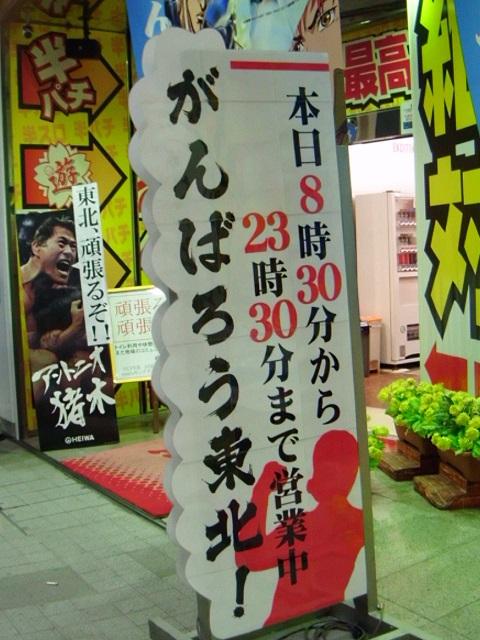 本日8時30分から
23時30分まで営業中
がんばろう東北!
東北、頑張るぞ!!
アントニオ
猪木
HEIWA
半パチ
遊
最高
頑張
頑張